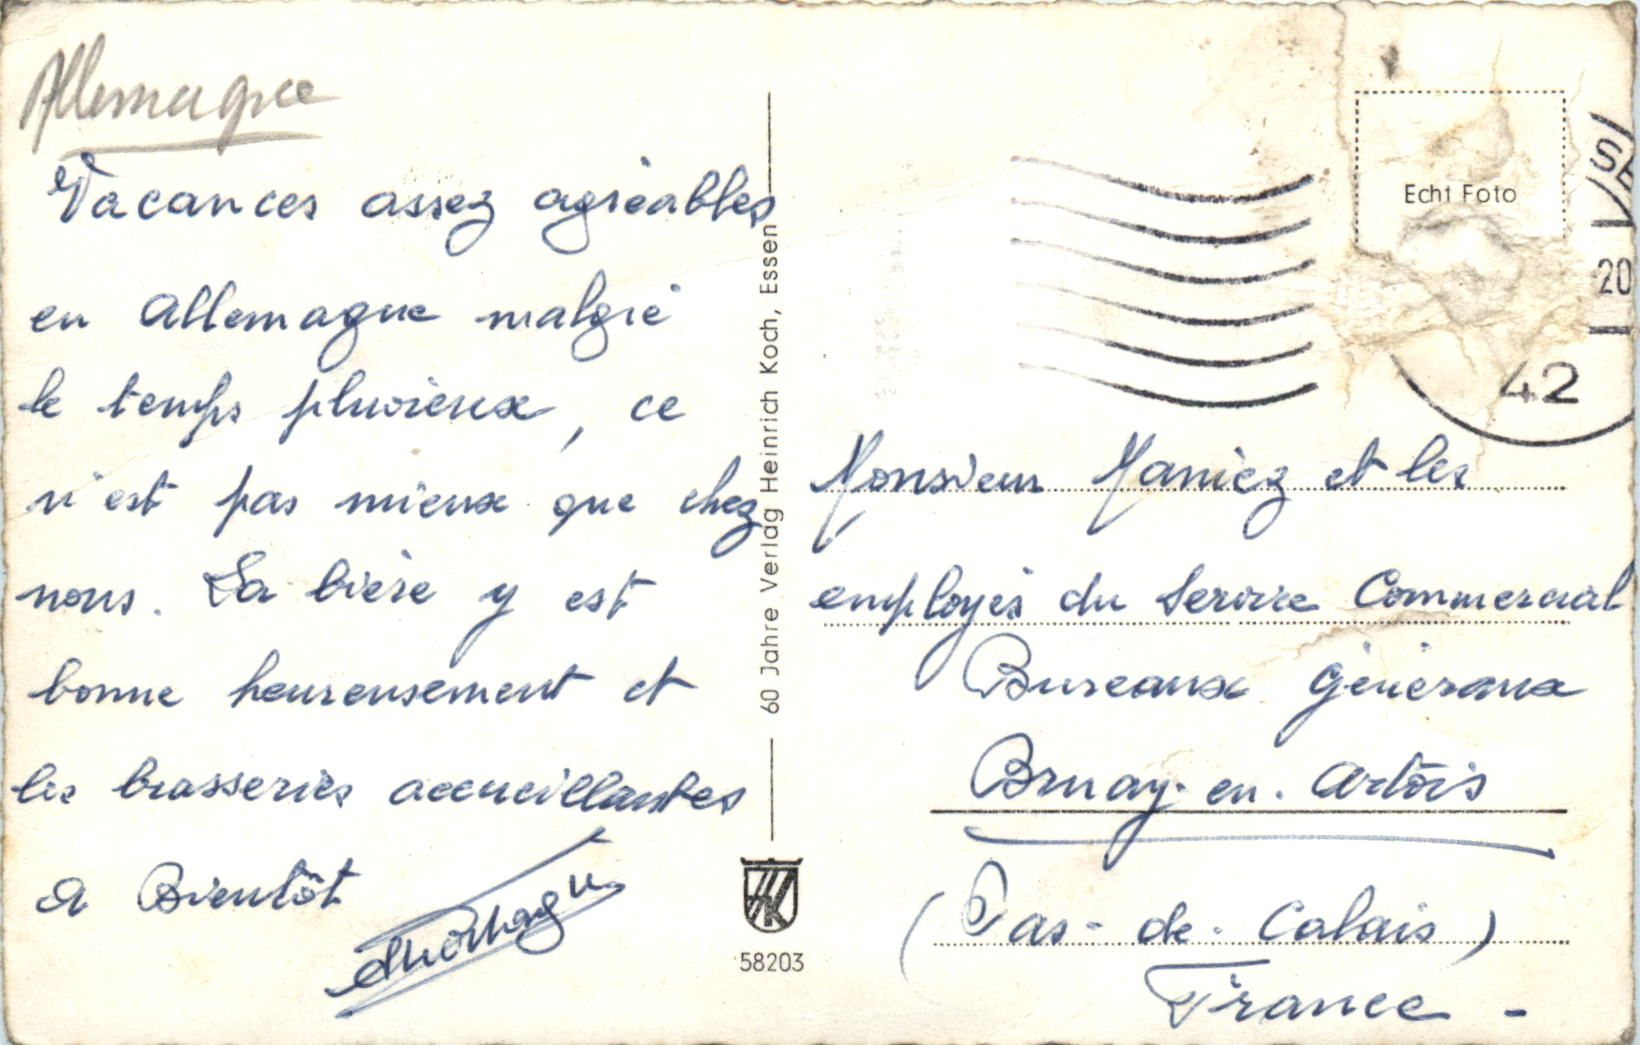 Allemagne
Vacances assez agréables
en Allemagne malgré
le temps pluvieux, ce
n'est pas mieux que chez
nous. La bière y est
bonne heureusement et
les brasseries accueillantes
a Bientôt
60 Jahre Verlag Heinrich Koch, Essen
HK
58203
Echt Foto
SE
20
42
Monsieur Maniez et les
employés du Service Commercial
Bureaux Généraux
Bruay-en-Artois
(Pas-de-Calais)
France -